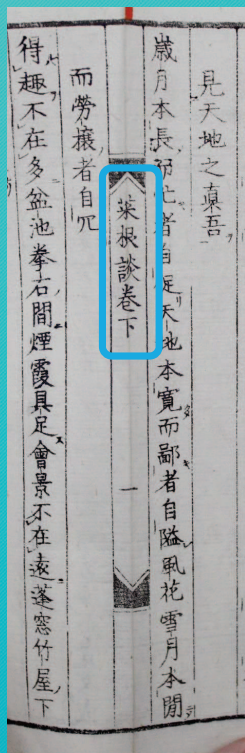 見天地之眞吾
歲月本長而忙者自促天地本寬而鄙者自隘風花雪月本閒
菜根談卷下
一
而勞攘者自冗
得趣不在多盆池拳石間煙霞具足會景不在遠蓬窓竹屋下